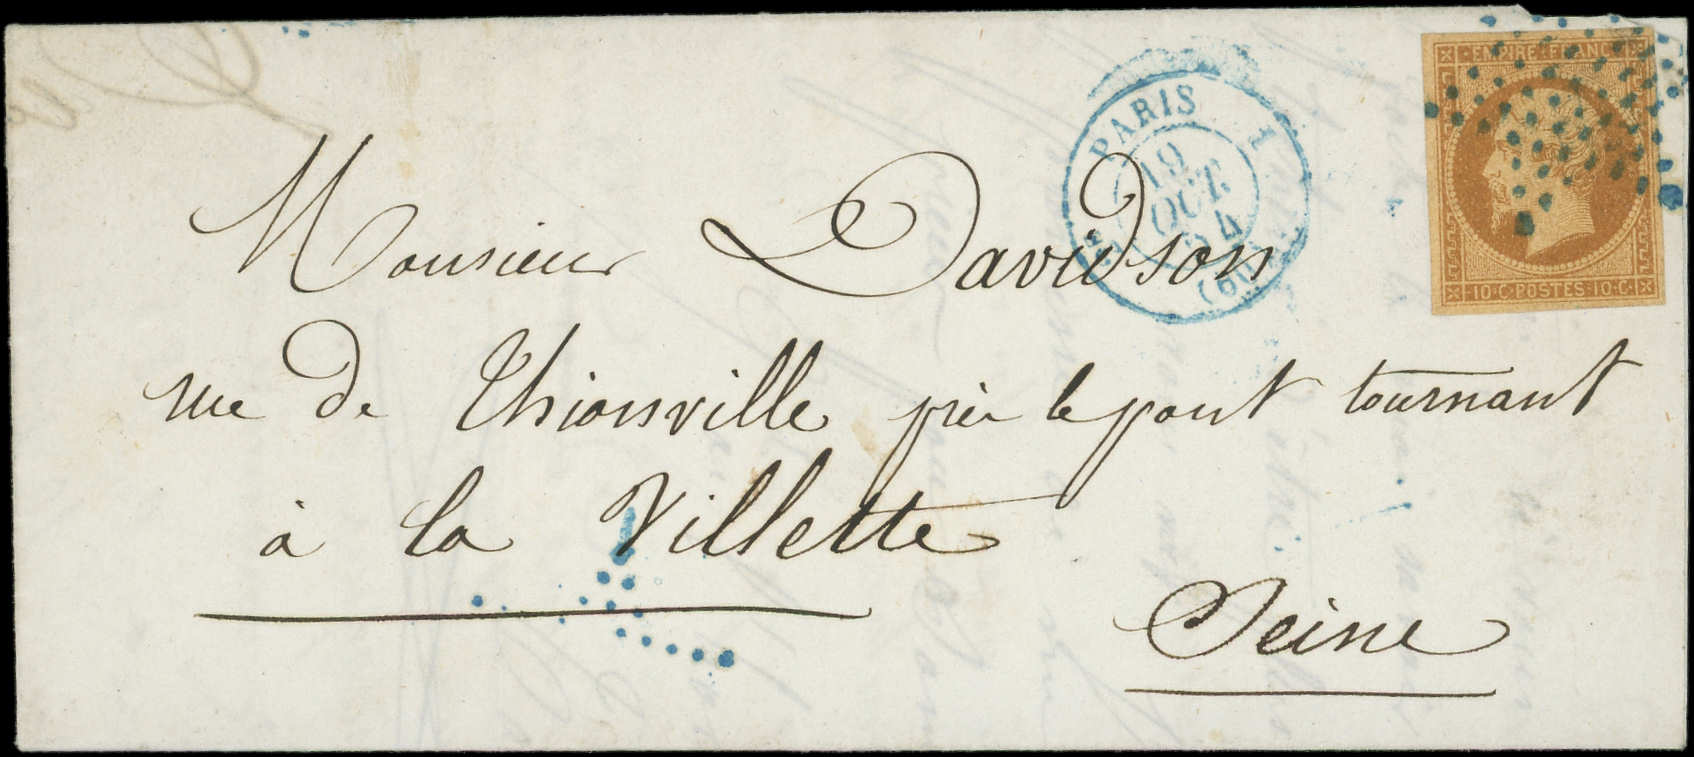 PARIS 1
19
OCT.
54
(60)
EMPIRE FRANC
10·C·POSTES·10·C·
Monsieur Davidson
rue de Thionville près le pont tournant
à la Villette
Seine